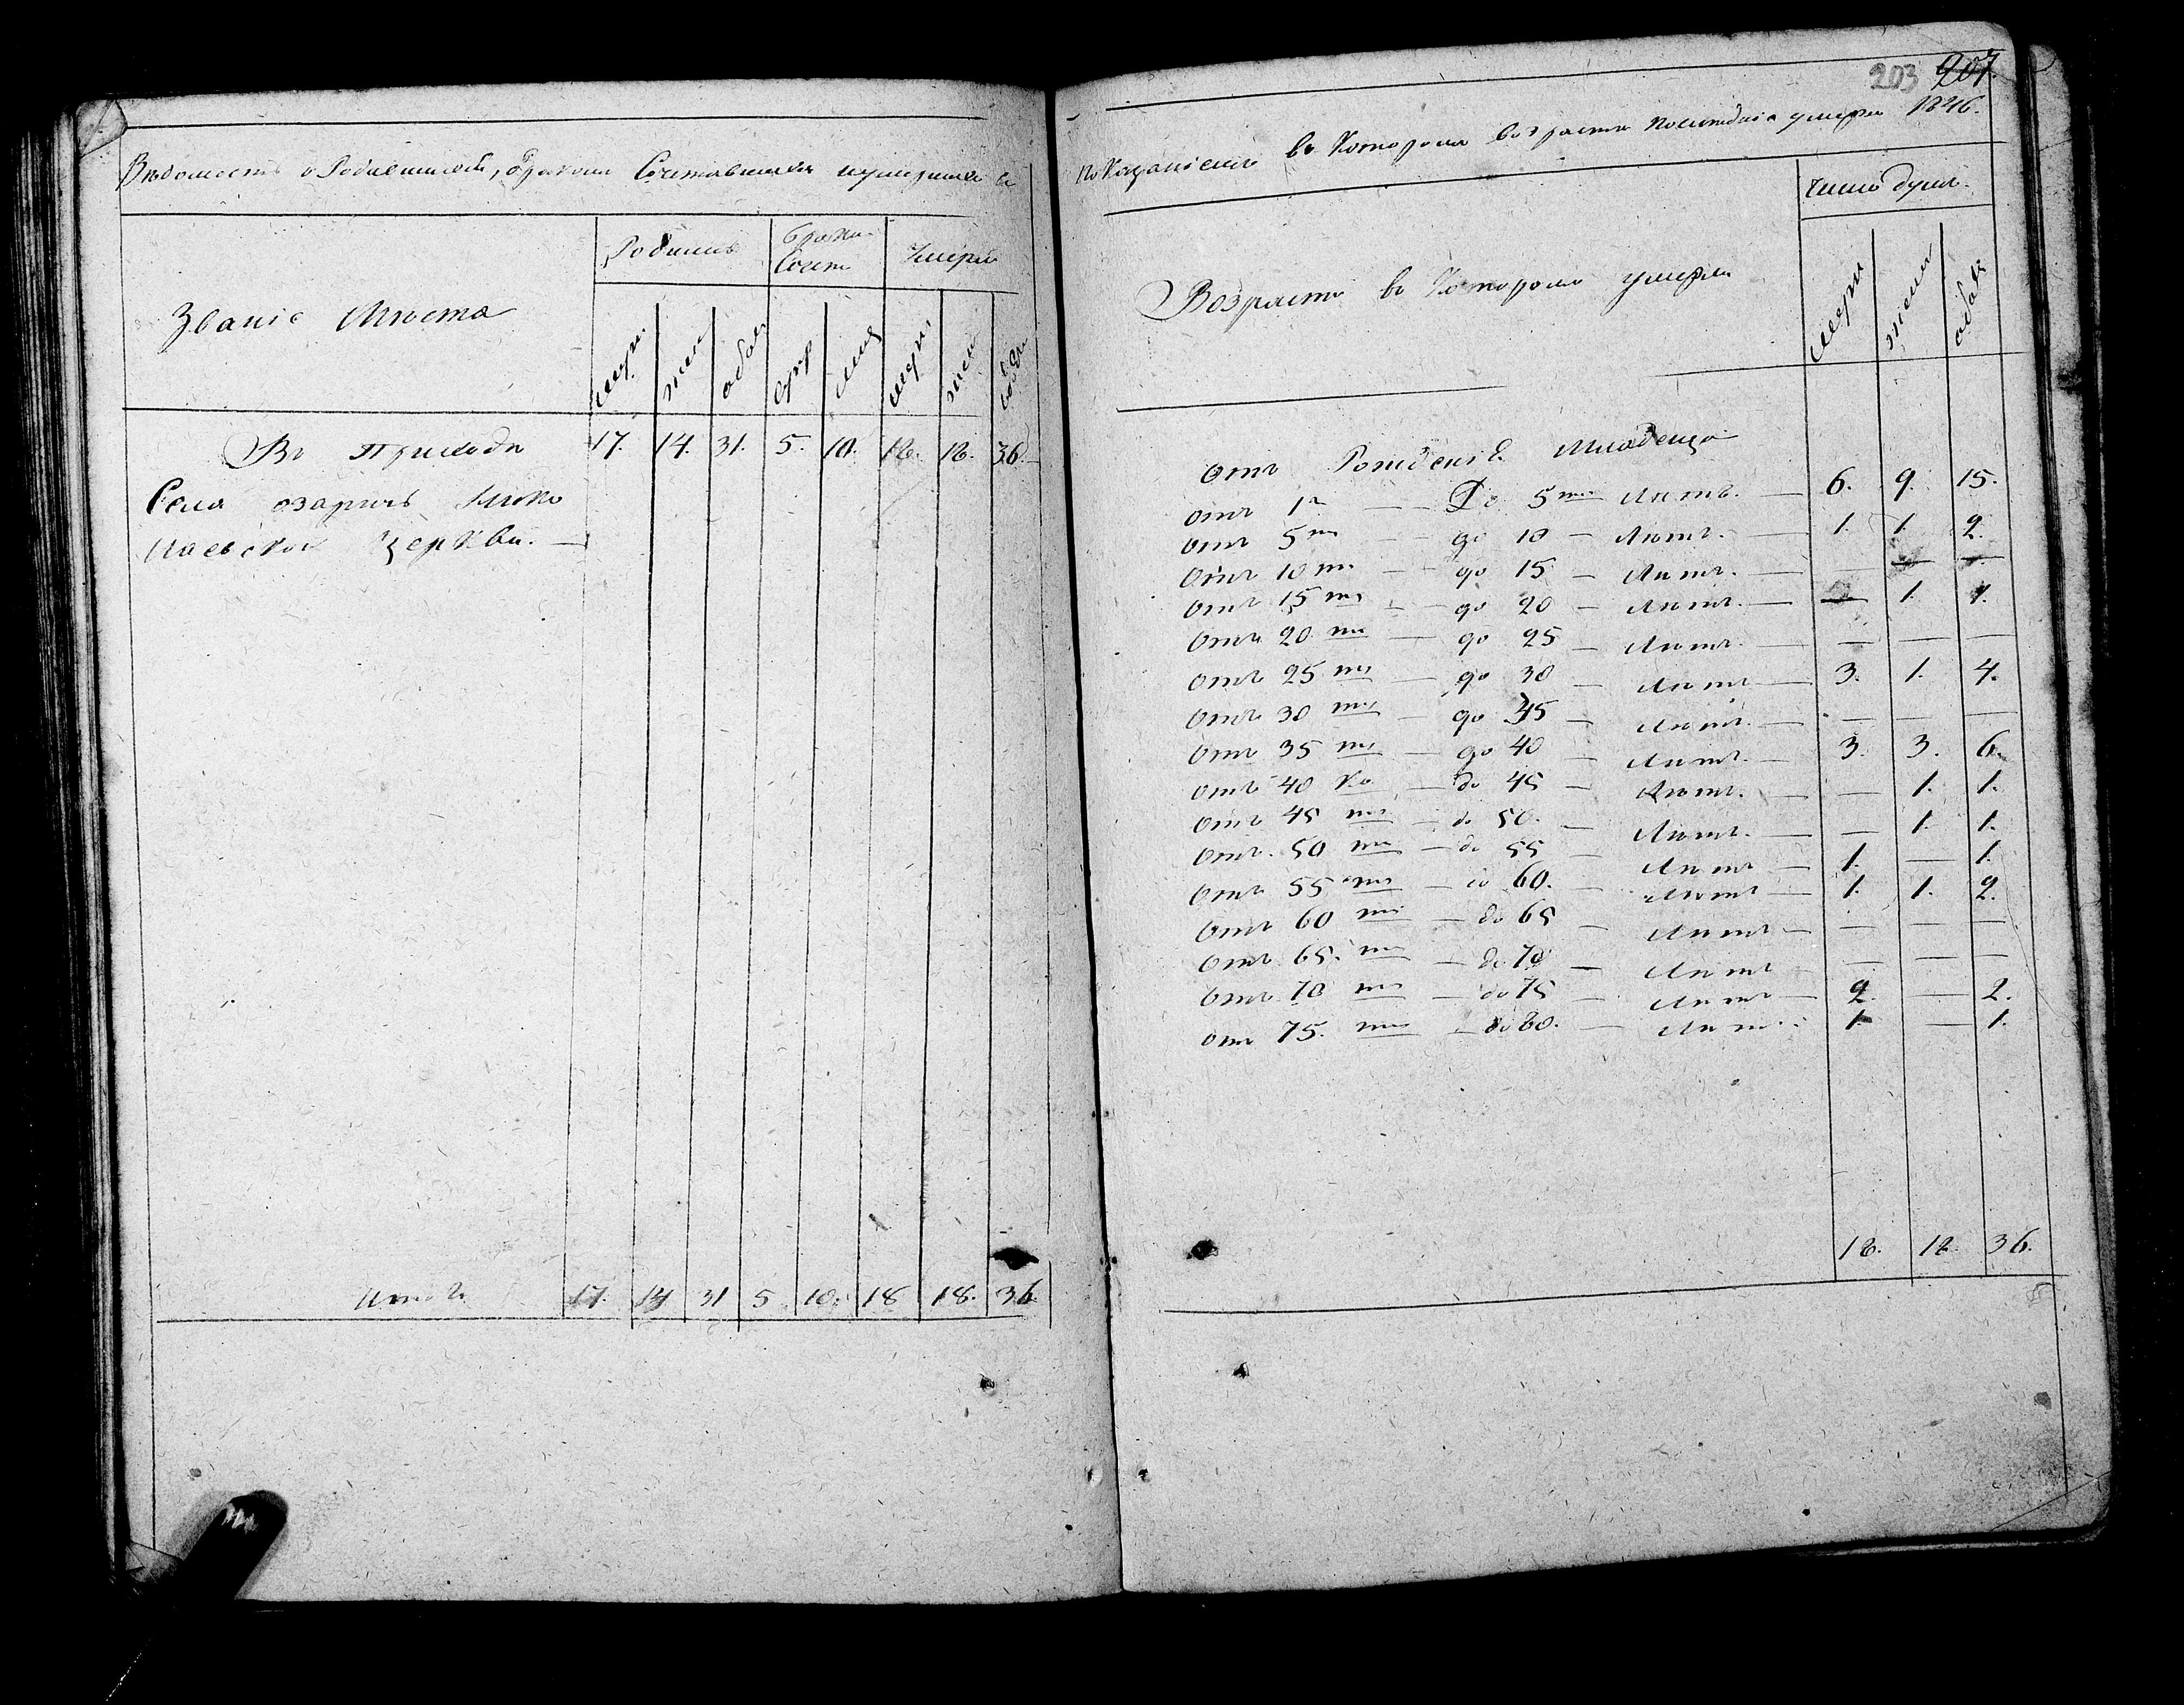 Вѣдомость о Родившихся, бракомъ Сочетавшихся и умершихъ съ
Званіе Мѣста
Родились
брако Сочет
Умерло
муж
жен
обоих
супр
лиц
муж
жен
обои
Въ Приходѣ 17. 14. 31. 5. 10. 18. 18. 36.
Села озаричъ Нико
лаевской Церкви.
Итого 17. 14 31 5. 10. 18 18. 36.
203 207.
показаніемъ въ Которомъ возрастѣ послѣдніе умерли 1846.
Число душъ.
Возрастъ въ Которомъ умерли
муж
жен
обоих
отъ Рожденія Младенца
отъ 1го До 5ти Лѣтъ. 6. 9. 15.
отъ 5ти до 10 Лѣтъ. 1. 1. 2.
отъ 10ти до 15 Лѣтъ. — — —
отъ 15ти до 20 Лѣтъ. — 1. 1.
отъ 20ти до 25 Лѣтъ. — — —
отъ 25ти до 30 Лѣтъ 3. 1. 4.
отъ 30ти до 35 Лѣтъ. — — —
отъ 35ти до 40 Лѣтъ. 3. 3. 6.
отъ 40ка до 45 Лѣтъ. — 1. 1.
отъ 45ти до 50. Лѣтъ. — 1. 1.
отъ 50ти до 55 Лѣтъ 1. — 1.
отъ 55ти до 60. Лѣтъ 1. 1. 2.
отъ 60ти до 65 Лѣтъ — — —
отъ 65ти до 70 Лѣтъ — — —
отъ 70ти до 75 Лѣтъ 2. — 2.
отъ 75ти до 80. Лѣтъ 1. — 1.
18. 18. 36.